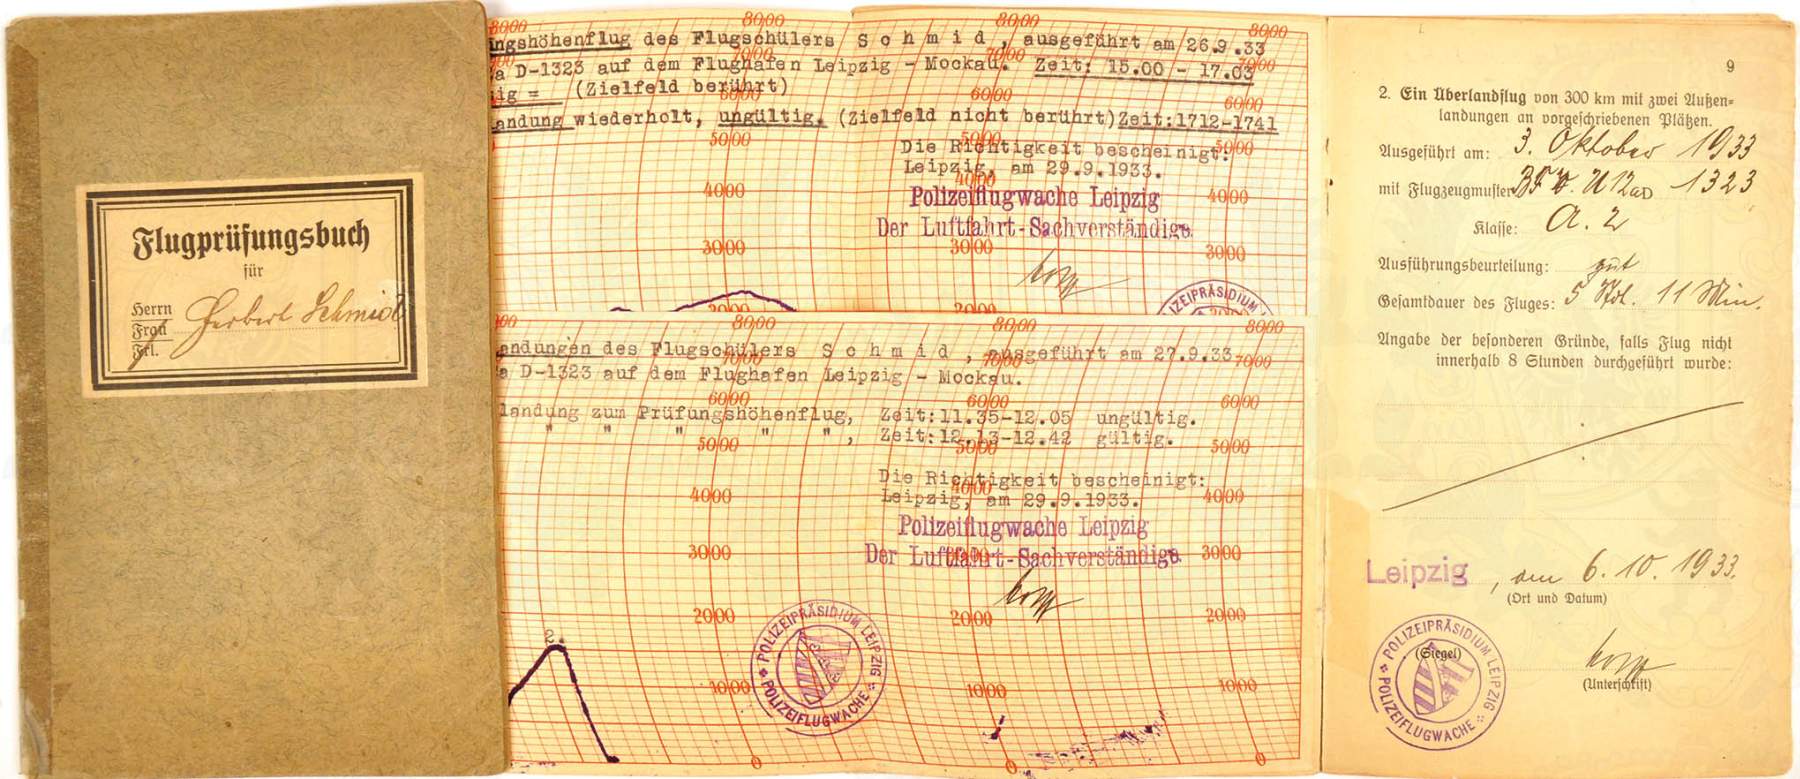 Flugprüfungsbuch
für
Herrn
Frau
Frl.
Herbert Schmidt
ungshöhenflug des Flugschülers S c h m i d , ausgeführt am 26.9.33
a D-1323 auf dem Flughafen Leipzig - Mockau. Zeit: 15.00 - 17.03
ig = (Zielfeld berührt)
andung wiederholt, ungültig. (Zielfeld nicht berührt) Zeit:1712-1741
Die Richtigkeit bescheinigt:
Leipzig, am 29.9.1933.
Polizeiflugwache Leipzig
Der Luftfahrt-Sachverständige
8000 8000 8000 8000
7000 7000 7000
6000 6000 6000
5000 5000 5000
4000 4000 4000
3000 3000 3000
2000 2000 2000
ZEIPRÄSIDIUM
8000 8000 8000
andungen des Flugschülers S c h m i d , ausgeführt am 27.9.33
a D-1323 auf dem Flughafen Leipzig - Mockau.
landung zum Prüfungshöhenflug, Zeit:11.35-12.05 ungültig.
" " " " " , Zeit:12.13-12.42 gültig.
Die Richtigkeit bescheinigt:
Leipzig, am 29.9.1933.
Polizeiflugwache Leipzig
Der Luftfahrt-Sachverständige
7000 7000 7000
6000 6000 6000
5000 5000 5000
4000 4000 4000
3000 3000 3000
2000 2000 2000
1000 1000 1000
0 0 0
2.
POLIZEIPRÄSIDIUM LEIPZIG
POLIZEIFLUGWACHE
9
2. Ein Überlandflug von 300 km mit zwei Außen=
landungen an vorgeschriebenen Plätzen.
Ausgeführt am: 3. Oktober 1933
mit Flugzeugmuster BFW. U12a D 1323
Klasse: A. 2
Ausführungsbeurteilung: gut
Gesamtdauer des Fluges: 5 Std. 11 Min.
Angabe der besonderen Gründe, falls Flug nicht
innerhalb 8 Stunden durchgeführt wurde:
Leipzig, am 6.10.1933.
(Ort und Datum)
(Siegel)
(Unterschrift)
POLIZEIPRÄSIDIUM LEIPZIG
POLIZEIFLUGWACHE